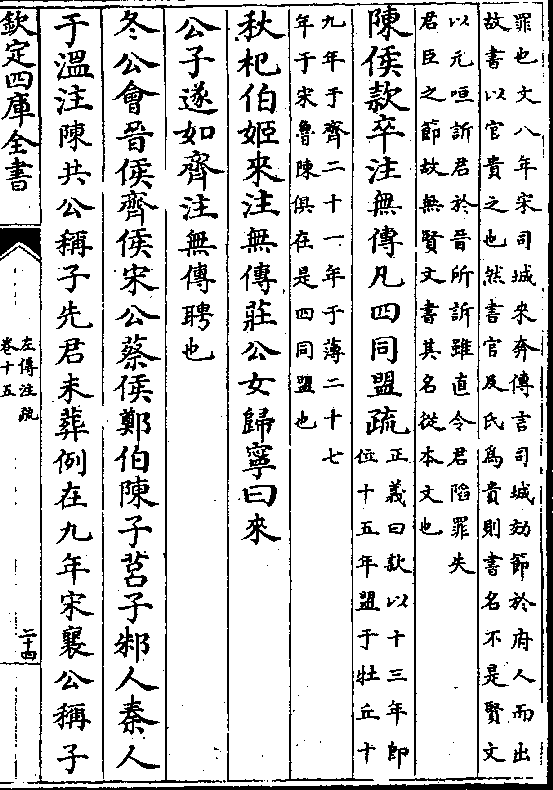 罪也文八年宋司城來奔傳言司城効節於府人而出
故書以官貴之也然書官及氏為貴則書名不是賢文
以元咺訴君於晉所訴雖直令君陷罪失
君臣之節故無賢文書其名從本文也
陳侯款卒注無傳凡四同盟疏
正義曰款以十三年即
位十五年盟于牡丘十
九年于齊二十一年于薄二十七
年于宋魯陳俱在是四同盟也
秋杞伯姬來注無傳莊公女歸寧曰來
公子遂如齊注無傳聘也
冬公會晉侯齊侯宋公蔡侯鄭伯陳子莒子邾人秦人
于溫注陳共公稱子先君未葬例在九年宋襄公稱子
欽定四庫全書
左傳注疏
卷十五
二十四